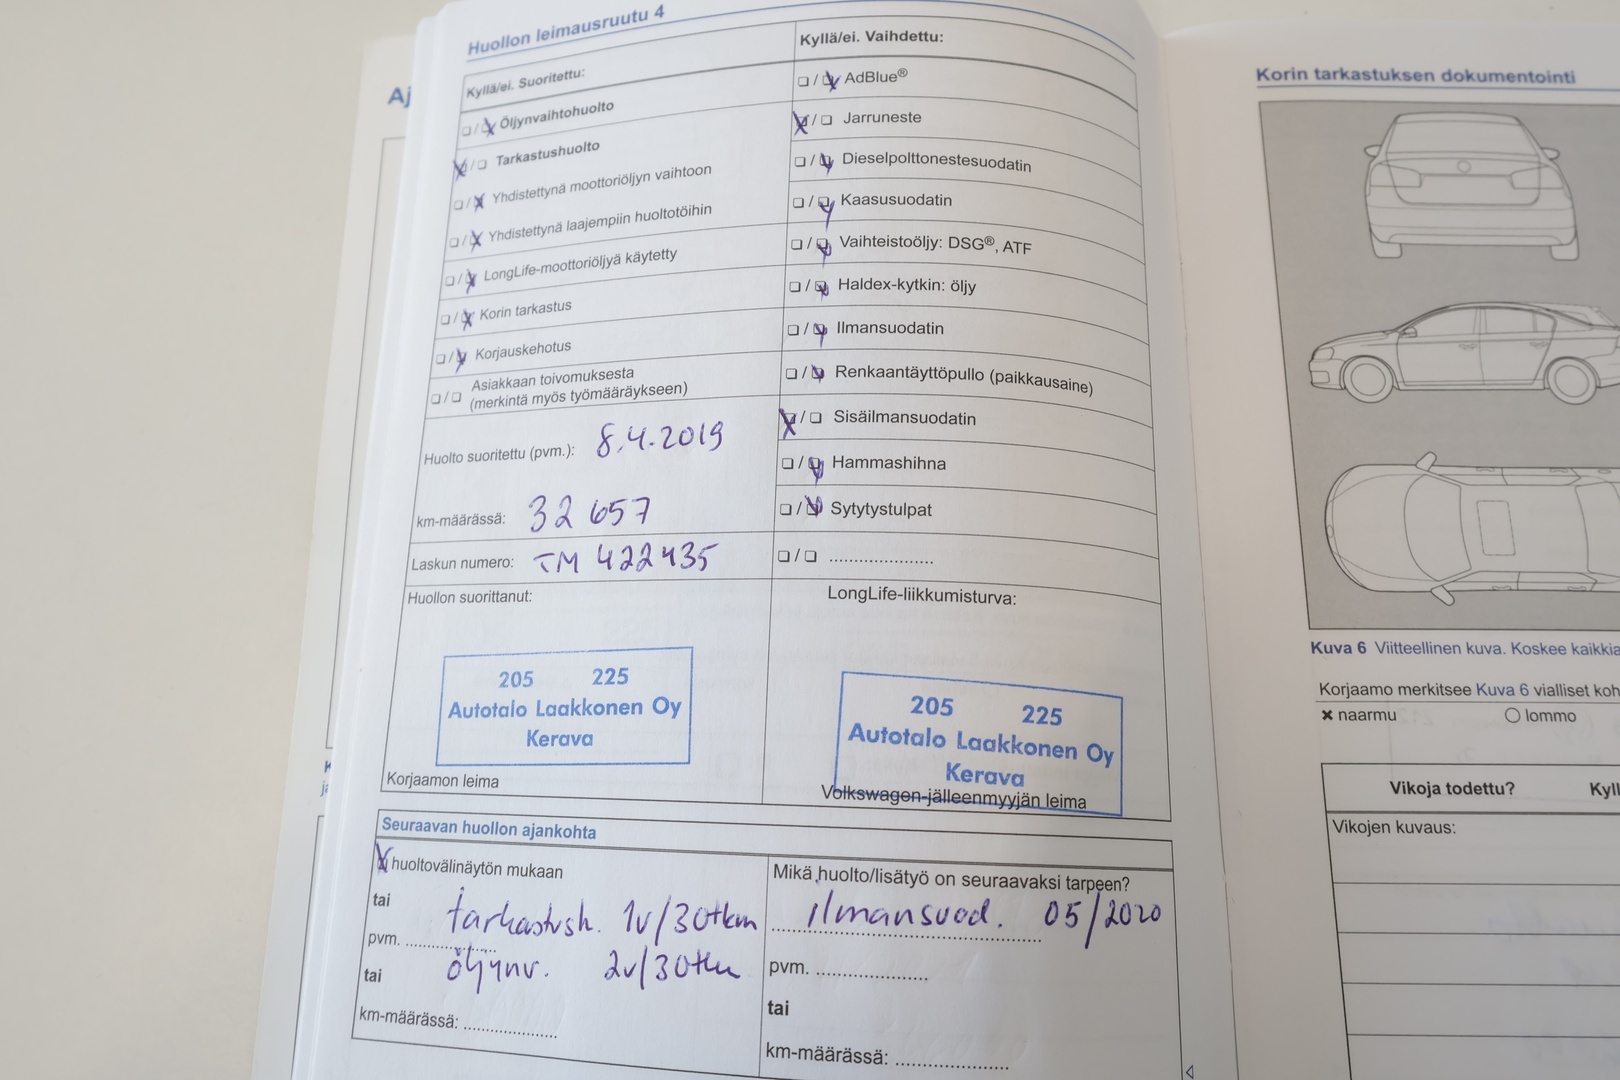 Aj
Huollon leimausruutu 4
Kyllä/ei. Suoritettu:
❏/❏ Öljynvaihtohuolto
❏/❏ Tarkastushuolto
❏/❏ Yhdistettynä moottoriöljyn vaihtoon
❏/❏ Yhdistettynä laajempiin huoltotöihin
❏/❏ LongLife-moottoriöljyä käytetty
❏/❏ Korin tarkastus
❏/❏ Korjauskehotus
❏/❏ Asiakkaan toivomuksesta
(merkintä myös työmääräykseen)
Huolto suoritettu (pvm.): 8.4.2019
km-määrässä: 32 657
Laskun numero: TM 422435
Kyllä/ei. Vaihdettu:
❏/❏ AdBlue®
❏/❏ Jarruneste
❏/❏ Dieselpolttonestesuodatin
❏/❏ Kaasusuodatin
❏/❏ Vaihteistoöljy: DSG®, ATF
❏/❏ Haldex-kytkin: öljy
❏/❏ Ilmansuodatin
❏/❏ Renkaantäyttöpullo (paikkausaine)
❏/❏ Sisäilmansuodatin
❏/❏ Hammashihna
❏/❏ Sytytystulpat
❏/❏ .....................
Huollon suorittanut:
205 225
Autotalo Laakkonen Oy
Kerava
Korjaamon leima
LongLife-liikkumisturva:
205 225
Autotalo Laakkonen Oy
Kerava
Volkswagen-jälleenmyyjän leima
Seuraavan huollon ajankohta
huoltovälinäytön mukaan
tai
tarkastush. 1v/30tkm
pvm. ..................
tai
öljynv. 2v/30tkm
km-määrässä: ..................
Mikä huolto/lisätyö on seuraavaksi tarpeen?
ilmansuod. 05/2020
pvm. ......................
tai
km-määrässä: ......................
Korin tarkastuksen dokumentointi
Kuva 6 Viitteellinen kuva. Koskee kaikkia
Korjaamo merkitsee Kuva 6 vialliset koh
× naarmu ○ lommo
Vikoja todettu? Kyll
Vikojen kuvaus: